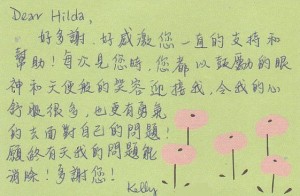 Dear Hilda,
好多謝、好感激您一直的支持和
幫助！每次見您時，您都以鼓勵的眼
神和天使般的笑容迎接我，令我的心
舒服很多，也更有勇氣
的去面對自己的問題！
願終有天我的問題能
消除！多謝您！
Kelly